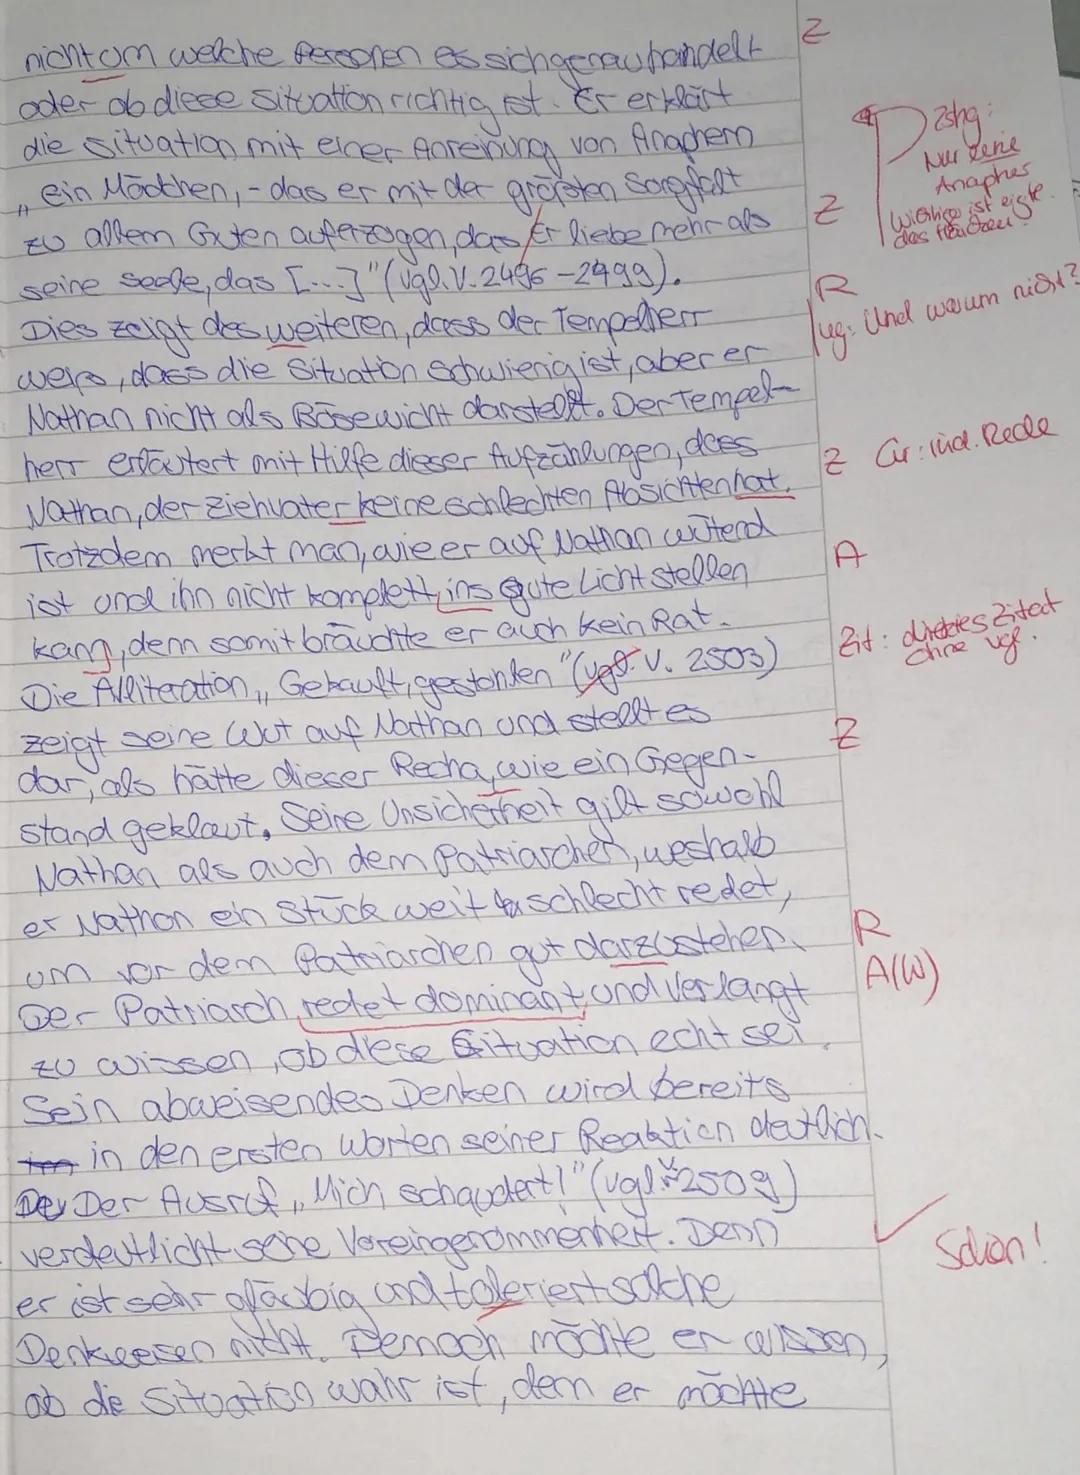 nicht um welche Personen es sich genau handelt
Z
oder ob diese Situation richtig ist. Er erklärt
die Situation mit einer Anreihung von Anaphern
„ein Mädchen, - das er mit der größten Sorgfalt
zu allem Guten auferzogen, das Er liebe mehr als
seine Seele, das [...]" (vgl. V. 2496-2499).
Zshg:
Nur keine
Anapher
Wichtige ist
das
Z
Dies zeigt des weiteren, dass der Tempelherr
R
ug: Und warum nicht?
weiß, dass die Situation schwierig ist, aber er
Nathan nicht als Bösewicht darstellt. Der Tempel-
herr erläutert mit Hilfe dieser Aufzählungen, dass
Z Gr: ind. Rede
Nathan, der Ziehvater keine schlechten Absichten hat.
Trotzdem merkt man, wie er auf Nathan wütend
A
ist und ihn nicht komplett ins gute Licht stellen
kann, denn somit bräuchte er auch kein Rat.
Zit: direktes Zitat
ohne vgl.
Die Alliteration „Gekauft, gestohlen" (vgl. V. 2503)
zeigt seine Wut auf Nathan und stellt es
Z
dar, als hätte dieser Recha, wie ein Gegen-
stand geklaut. Seine Unsicherheit gilt sowohl
Nathan als auch dem Patriarchen, weshalb
er Nathan ein Stück weit schlecht redet,
um vor dem Patriarchen gut darzustehen.
R
Der Patriarch redet dominant und verlangt
A(W)
zu wissen, ob diese Situation echt sei.
Sein abweisendes Denken wird bereits
in den ersten Worten seiner Reaktion deutlich.
Der Der Ausruf „Mich schaudert!" (vgl. V. 2509)
verdeutlicht seine Voreingenommenheit. Denn
Schön!
er ist sehr gläubig und toleriert solche
Denkweisen nicht. Dennoch möchte er wissen,
ob die Situation wahr ist, denn er möchte